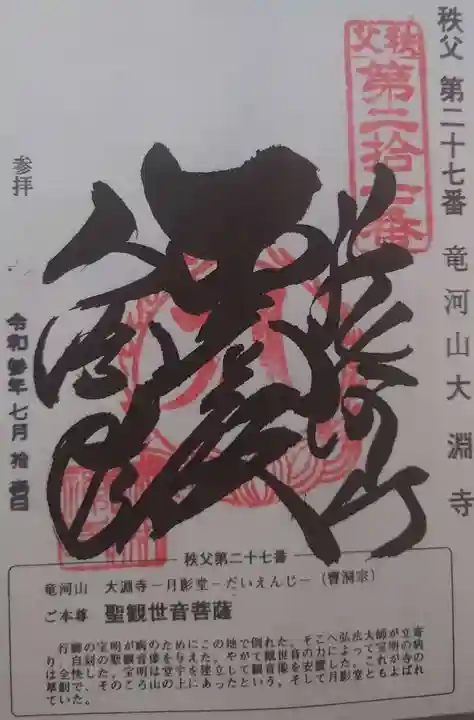 秩父 第二十七番 竜河山大淵寺
秩父
第二拾七番
参拝
令和参年七月拾壱日
秩父第二十七番
竜河山 大淵寺－月影堂－だいえんじ－(曹洞宗)
ご本尊 聖観世音菩薩
行脚の宝明が病のためにこの地で倒れた。そこへ弘法大師が立寄
り、自刻の聖観音像を与えた。やがて観世音の力によって宝明の病
は全快した。宝明は堂宇を建立して観音像を安置した。これが寺の
草創で、そのころ山の上にあったという。そして月影堂ともよばれ
ていた。